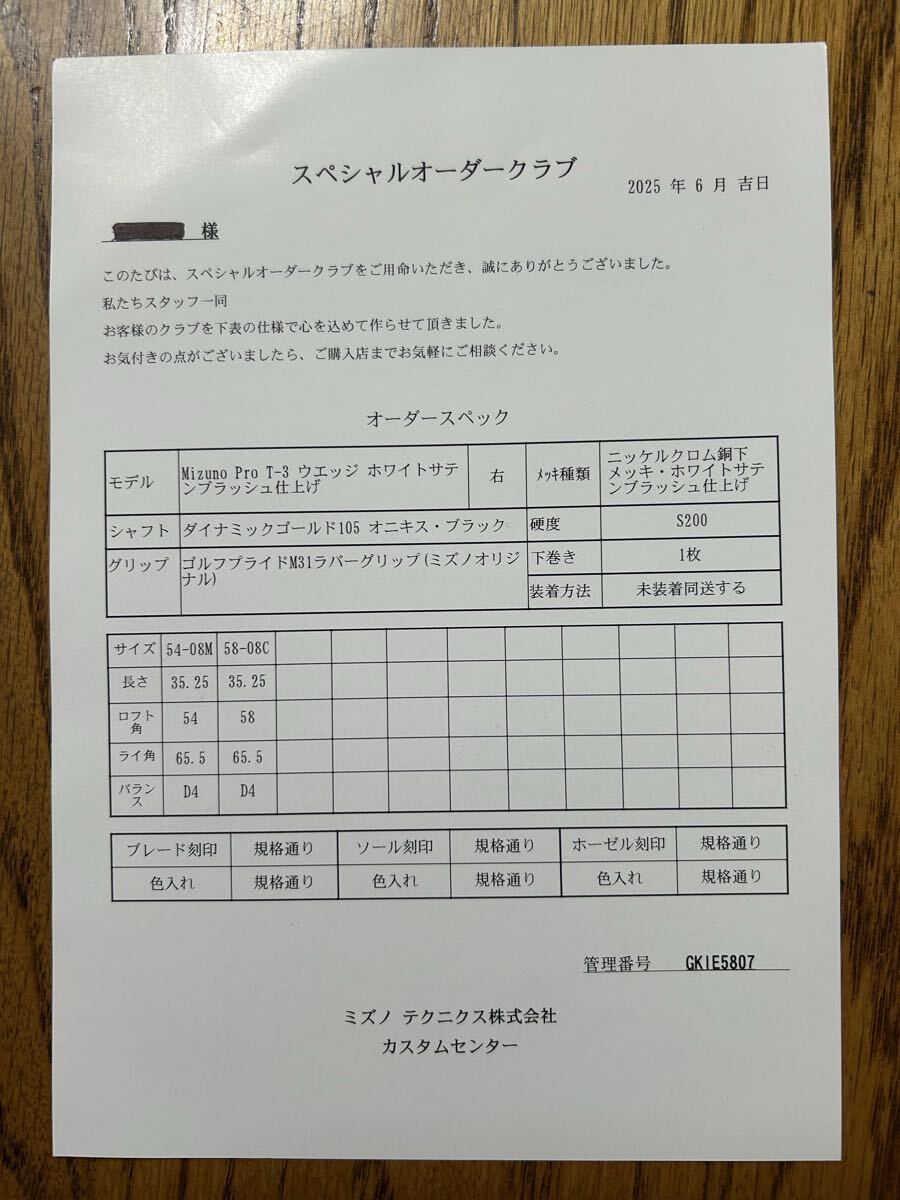 スペシャルオーダークラブ
2025 年 6 月 吉日
様
このたびは、スペシャルオーダークラブをご用命いただき、誠にありがとうございました。
私たちスタッフ一同
お客様のクラブを下表の仕様で心を込めて作らせて頂きました。
お気付きの点がございましたら、ご購入店までお気軽にご相談ください。
オーダースペック
モデル Mizuno Pro T-3 ウエッジ ホワイトサテンブラッシュ仕上げ 右 ﾒｯｷ種類 ニッケルクロム銅下メッキ・ホワイトサテンブラッシュ仕上げ
シャフト ダイナミックゴールド105 オニキス・ブラック 硬度 S200
グリップ ゴルフプライドM31ラバーグリップ(ミズノオリジナル) 下巻き 1枚
装着方法 未装着同送する
サイズ 54-08M 58-08C
長さ 35.25 35.25
ロフト角 54 58
ライ角 65.5 65.5
バランス D4 D4
ブレード刻印 規格通り ソール刻印 規格通り ホーゼル刻印 規格通り
色入れ 規格通り 色入れ 規格通り 色入れ 規格通り
管理番号 GKIE5807
ミズノ テクニクス株式会社
カスタムセンター